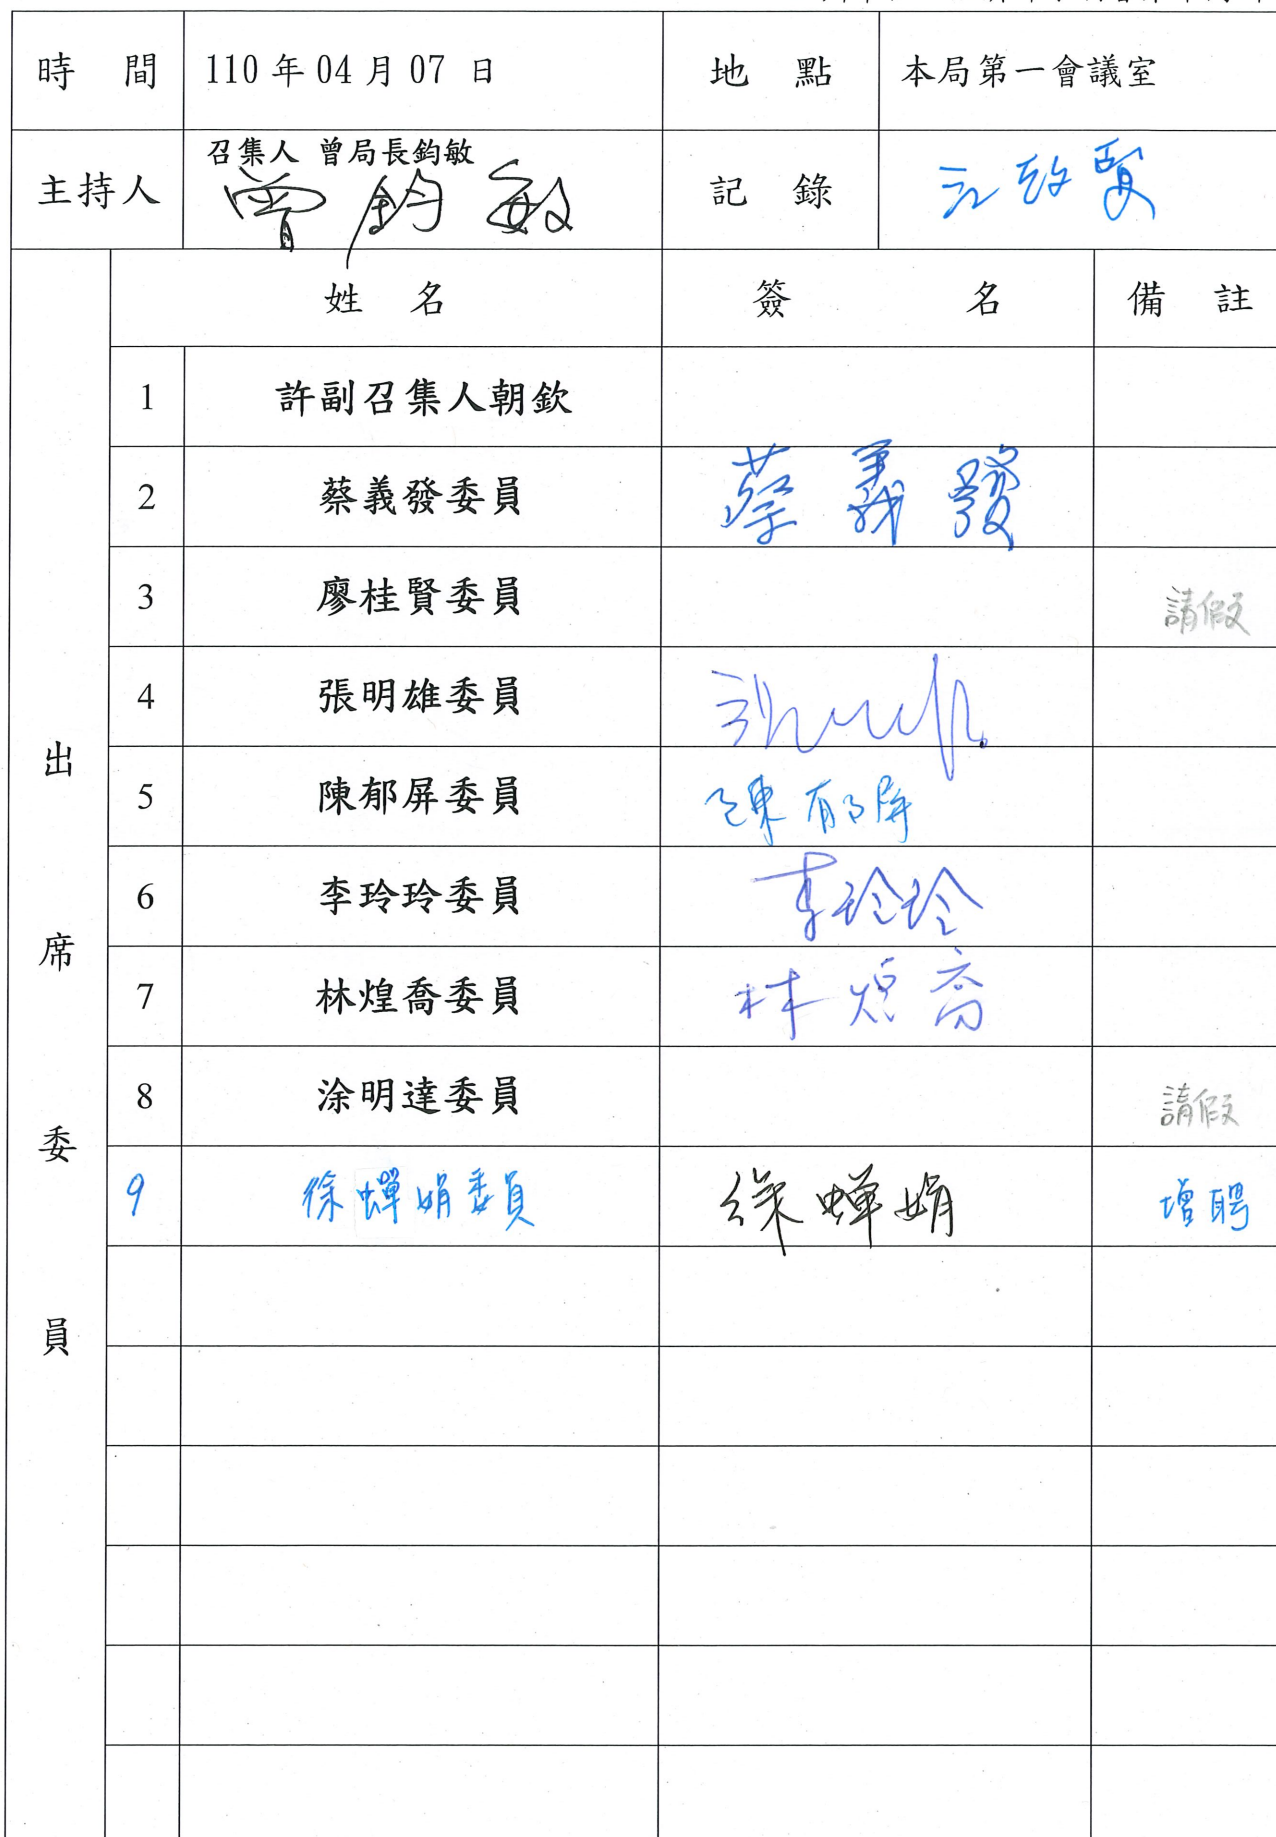 時間 110年04月07日 地點 本局第一會議室
主持人 召集人 曾局長鈞敏 記錄
曾鈞敏
姓名 簽名 備註
出席委員
1 許副召集人朝欽
2 蔡義發委員 蔡義發
3 廖桂賢委員 請假
4 張明雄委員
5 陳郁屏委員 陳郁屏
6 李玲玲委員 李玲玲
7 林煌喬委員 林煌喬
8 涂明達委員 請假
9 徐蟬娟委員 徐蟬娟 增聘